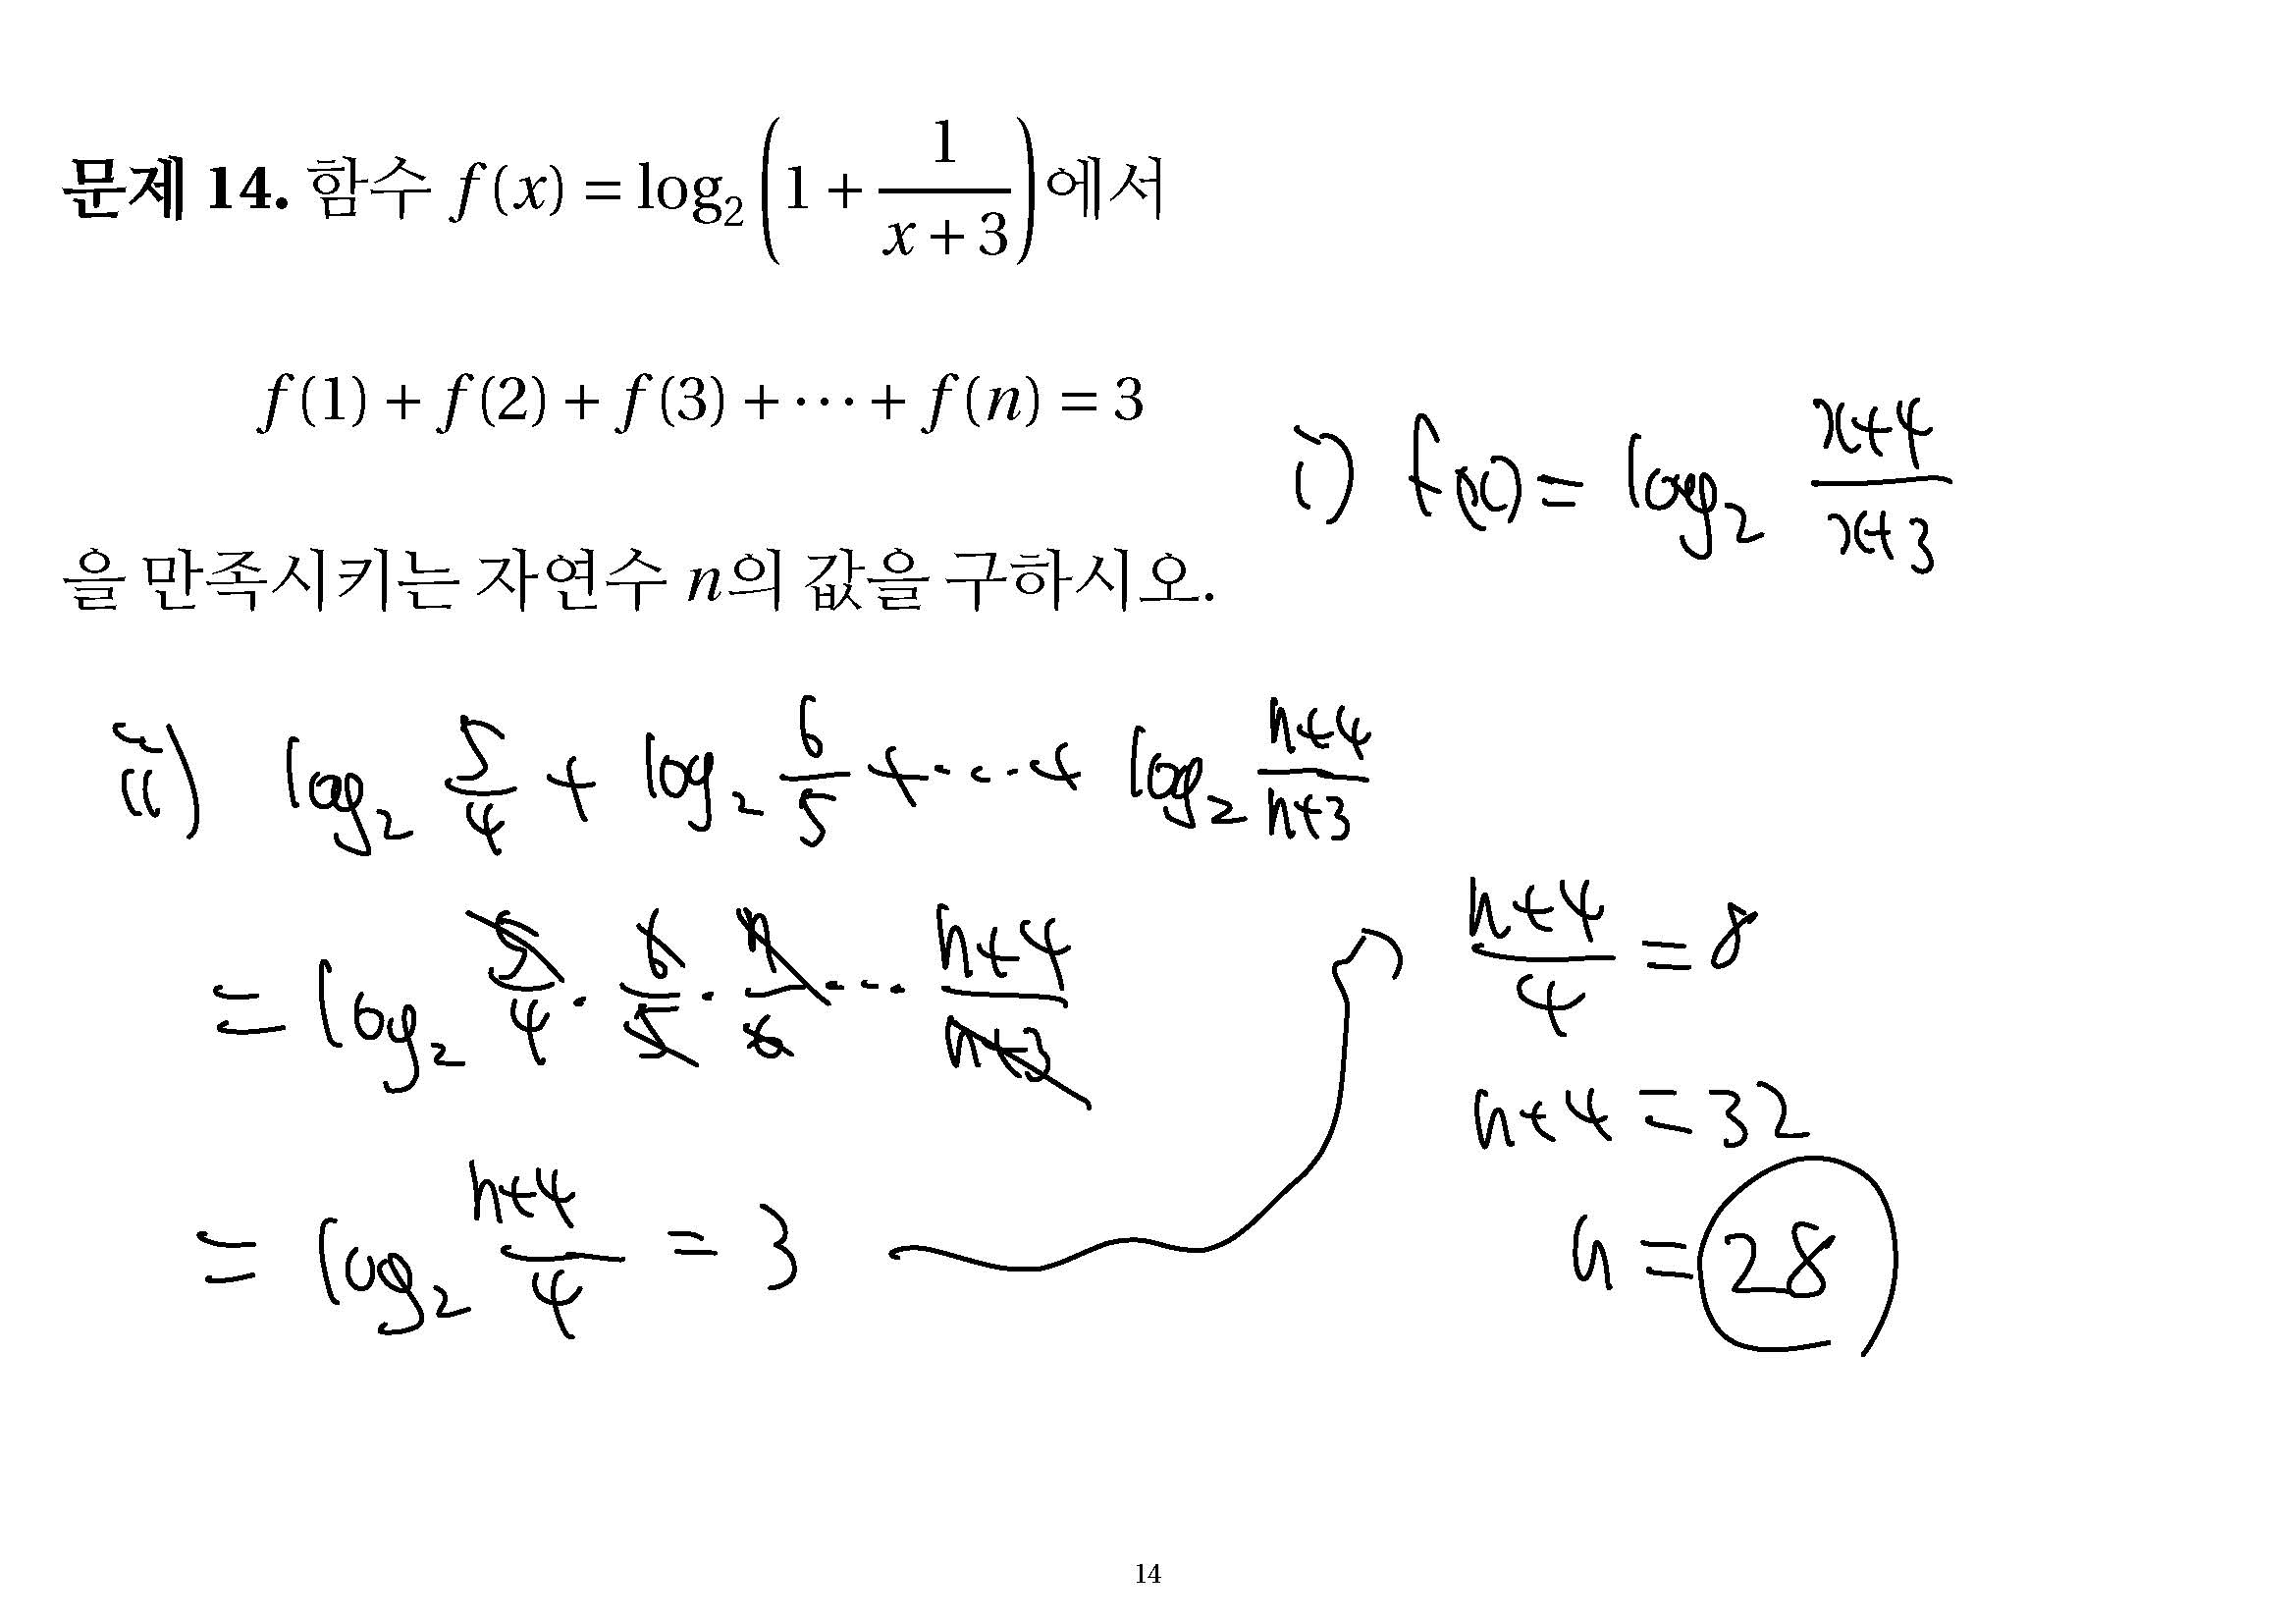 문제 14. 함수 f(x) = log₂(1 + 1/(x+3))에서
f(1) + f(2) + f(3) + ⋯ + f(n) = 3
을 만족시키는 자연수 n의 값을 구하시오.
i) f(x) = log₂ (x+4)/(x+3)
ii) log₂ 5/4 + log₂ 6/5 + ⋯ + log₂ (n+4)/(n+3)
= log₂ 5/4 · 6/5 · 7/6 ⋯ (n+4)/(n+3)
= log₂ (n+4)/4 = 3
(n+4)/4 = 8
n+4 = 32
n = 28
14